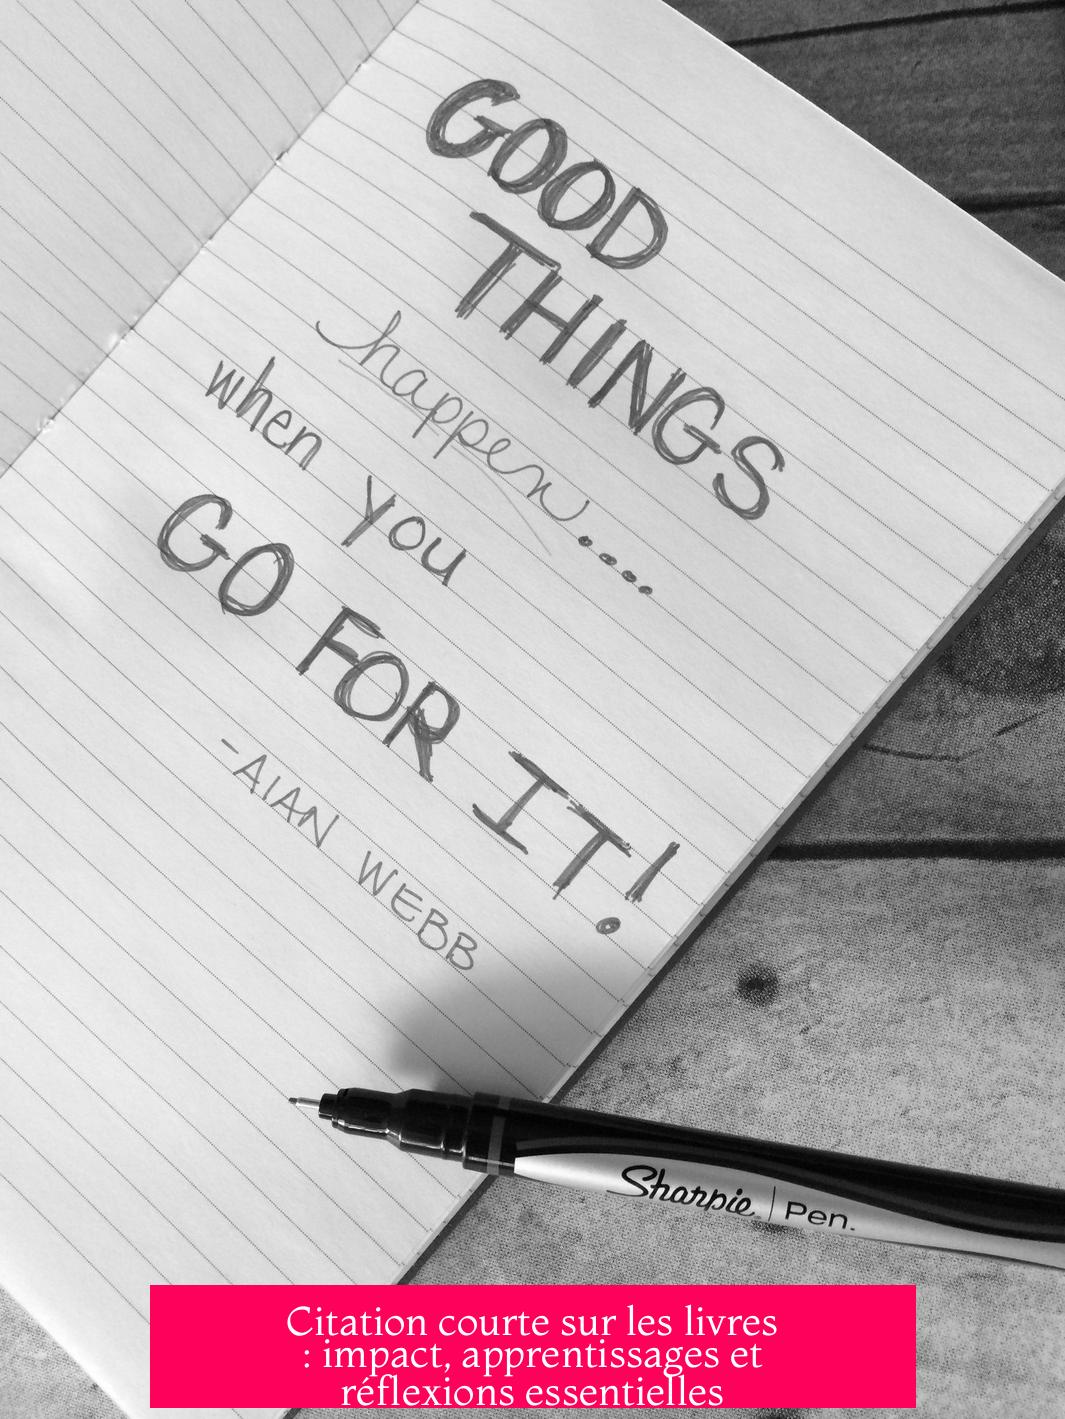 GOOD
THINGS
happen....
when you
GO FOR IT!
-AlAN WEBB
Sharpie | Pen.
Citation courte sur les livres
: impact, apprentissages et
réflexions essentielles